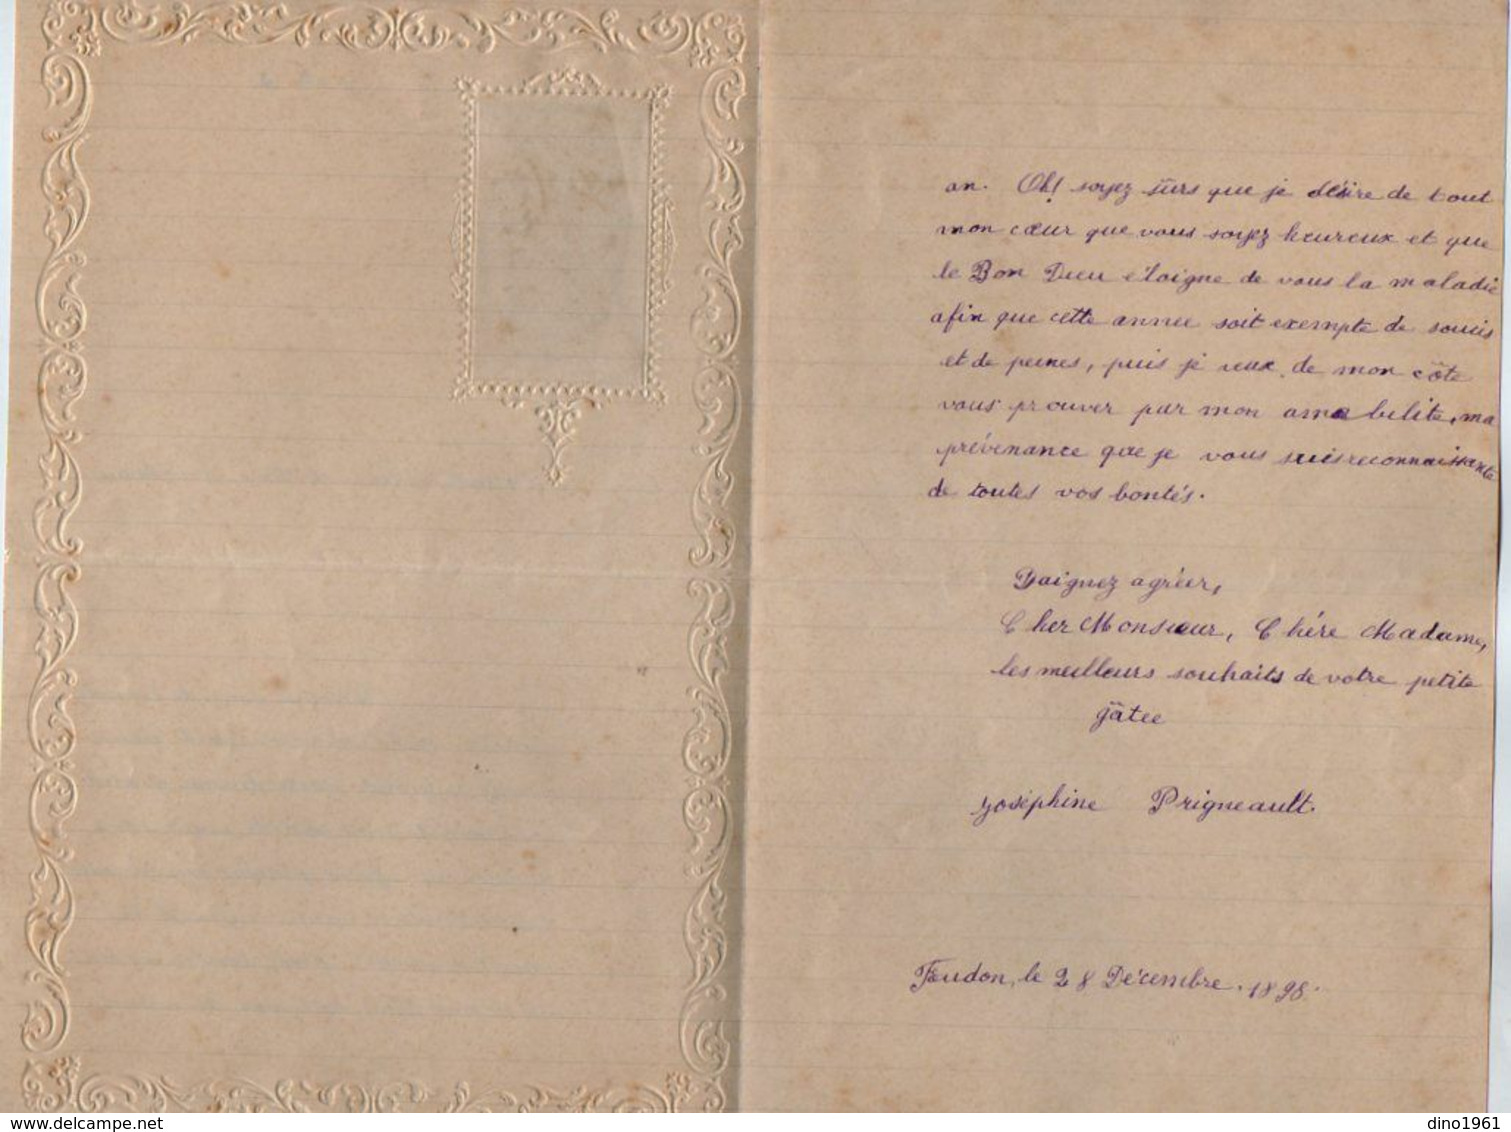 an. Oh! soyez sûrs que je désire de tout
mon cœur que vous soyez heureux et que
le Bon Dieu éloigne de vous la maladie
afin que cette annee soit exempte de soucis
et de peines, puis je veux de mon côte
vous prouver par mon amabilite, ma
prévenance que je vous suis reconnaissante
de toutes vos bontés.
Daignez agréer,
Cher Monsieur, Chére Madame,
les meilleurs souhaits de votre petite
gâtee
Joséphine Prigneault.
Feudon, le 28 Décembre. 1898.
www.delcampe.net
dino1961